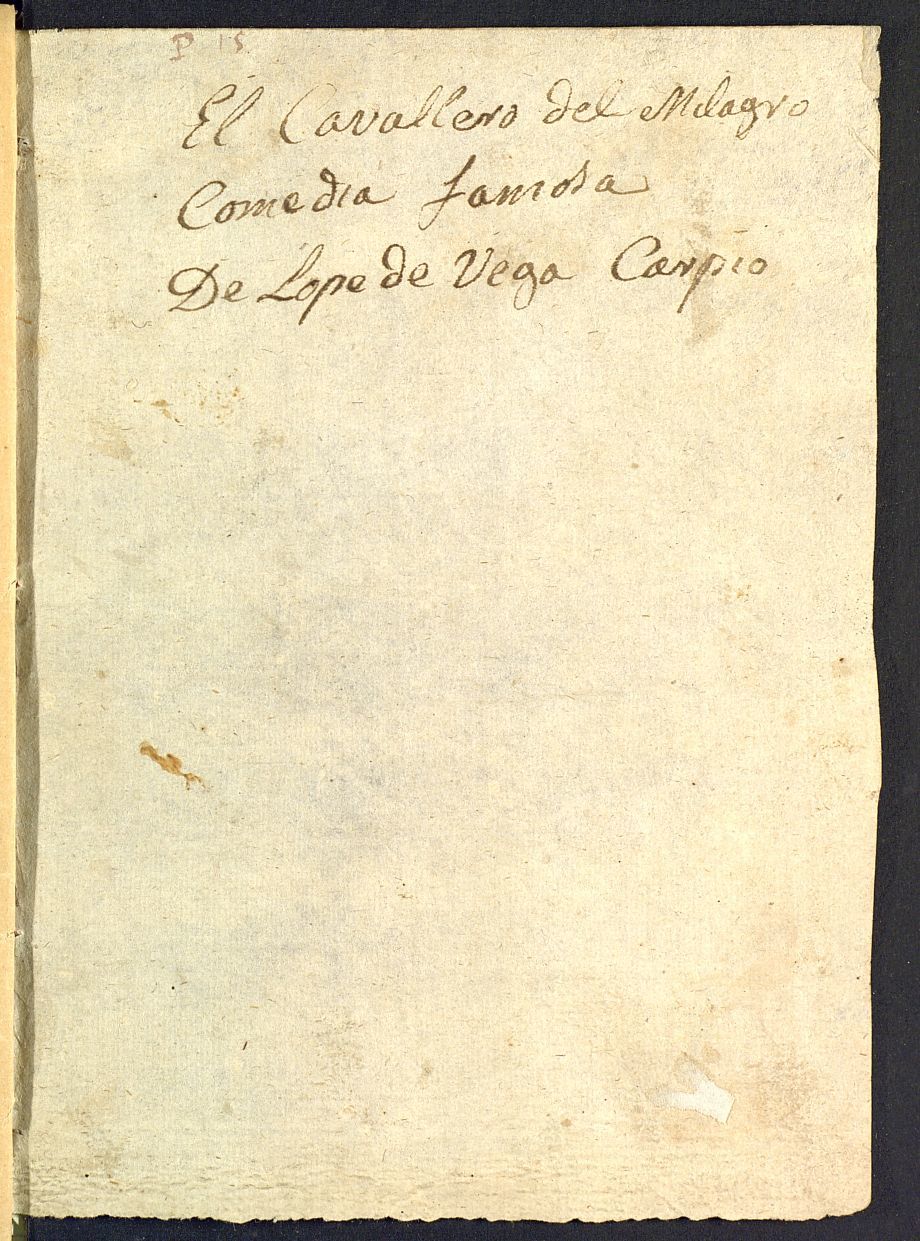 P 15
El Cavallero del Milagro
Comedia famosa
De Lope de Vega Carpio